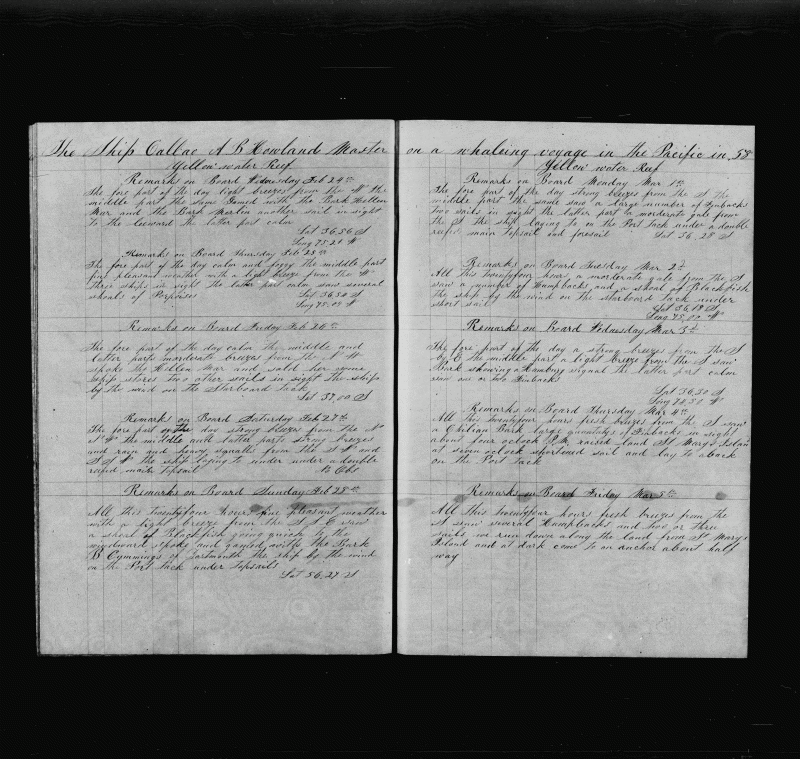 The Ship Callao A B Howland Master
Yellow water Reef
Remarks on Board Wednesday Feb 24th
The fore part of the day light breezes from the N the
middle part the same Gamed with the Bark Hellen
Mar and the Bark Merlin another sail in sight
to the leeward the latter part calm
Lat 36,56 S
Long 75,20 W
Remarks on Board Thursday Feb 25th
The fore part of the day calm and foggy the middle part
fore pleasant weather with a light breeze from the W
Three ships in sight the latter part calm saw several
shoals of Porpoises
Lat 36,50 S
Long 75,09 W
Remarks on Board Friday Feb 26th
The fore part of the day calm the middle and
latter parts morderate breezes from the N W
spoke the Hellen Mar and sold her some
ship stores two other sails in sight the ship
by the wind on the Starboard tack
Lat 37,00 S
Remarks on Board Saturday Feb 27th
The fore part of the day strong breezes from the N
N W the middle and latter parts strong breezes
and rain and heavy squalls from the S W and
S S W the ship laying to under under a double
reefed main topsail
No Obs
Remarks on Board Sunday Feb 28th
All this twentyfour hours fine pleasant weather
with a light breeze from the S S E saw
a shoal of Blackfish going quick to the
windward stody and gamed with the Bark
B Cummings of Dartmouth the ship by the wind
on the Port tack under topsails
Lat 36,27 S
on a whaleing voyage in the Pacific in 58
Yellow water Reef
Remarks on Board Monday Mar 1st
The fore part of the day strong breezes from the S The
middle part the same saw a large number of Finbacks
two sails in sight the latter part a morderate gale from
the S the ship laying to on the Port tack under a double
reefed main topsail and foresail
Lat 36,28 S
Remarks on Board Tuesday Mar 2d
All this twentyfour hours a morderate gale from the S
saw a number of Humpbacks and a shoal of Blackfish
the ship by the wind on the starboard tack under
short sail
Lat 36,19 S
Long 75,00 W
Remarks on Board Wednesday Mar 3d
The fore part of the day a strong breezes from the S
by E the middle part a light breeze from the S saw
Bark showing a Hamburg signal the latter part calm
saw one or two Finbacks
Lat 36,50 S
Long 74,51 W
Remarks on Board Thursday Mar 4th
All this twentyfour hours fresh breezes from the S saw
a Chilean Bark large quantitys of Finbacks in sight
about four oclock P.M. raised land St Marys Island
at seven oclock shortened sail and lay to aback
on the Port tack
Remarks on Board Friday Mar 5th
All this twentyfour hours fresh breezes from the
S saw several Humpbacks and two or three
sails we run down along the land from St Marys
Island and at dark come to an anchor about half
way